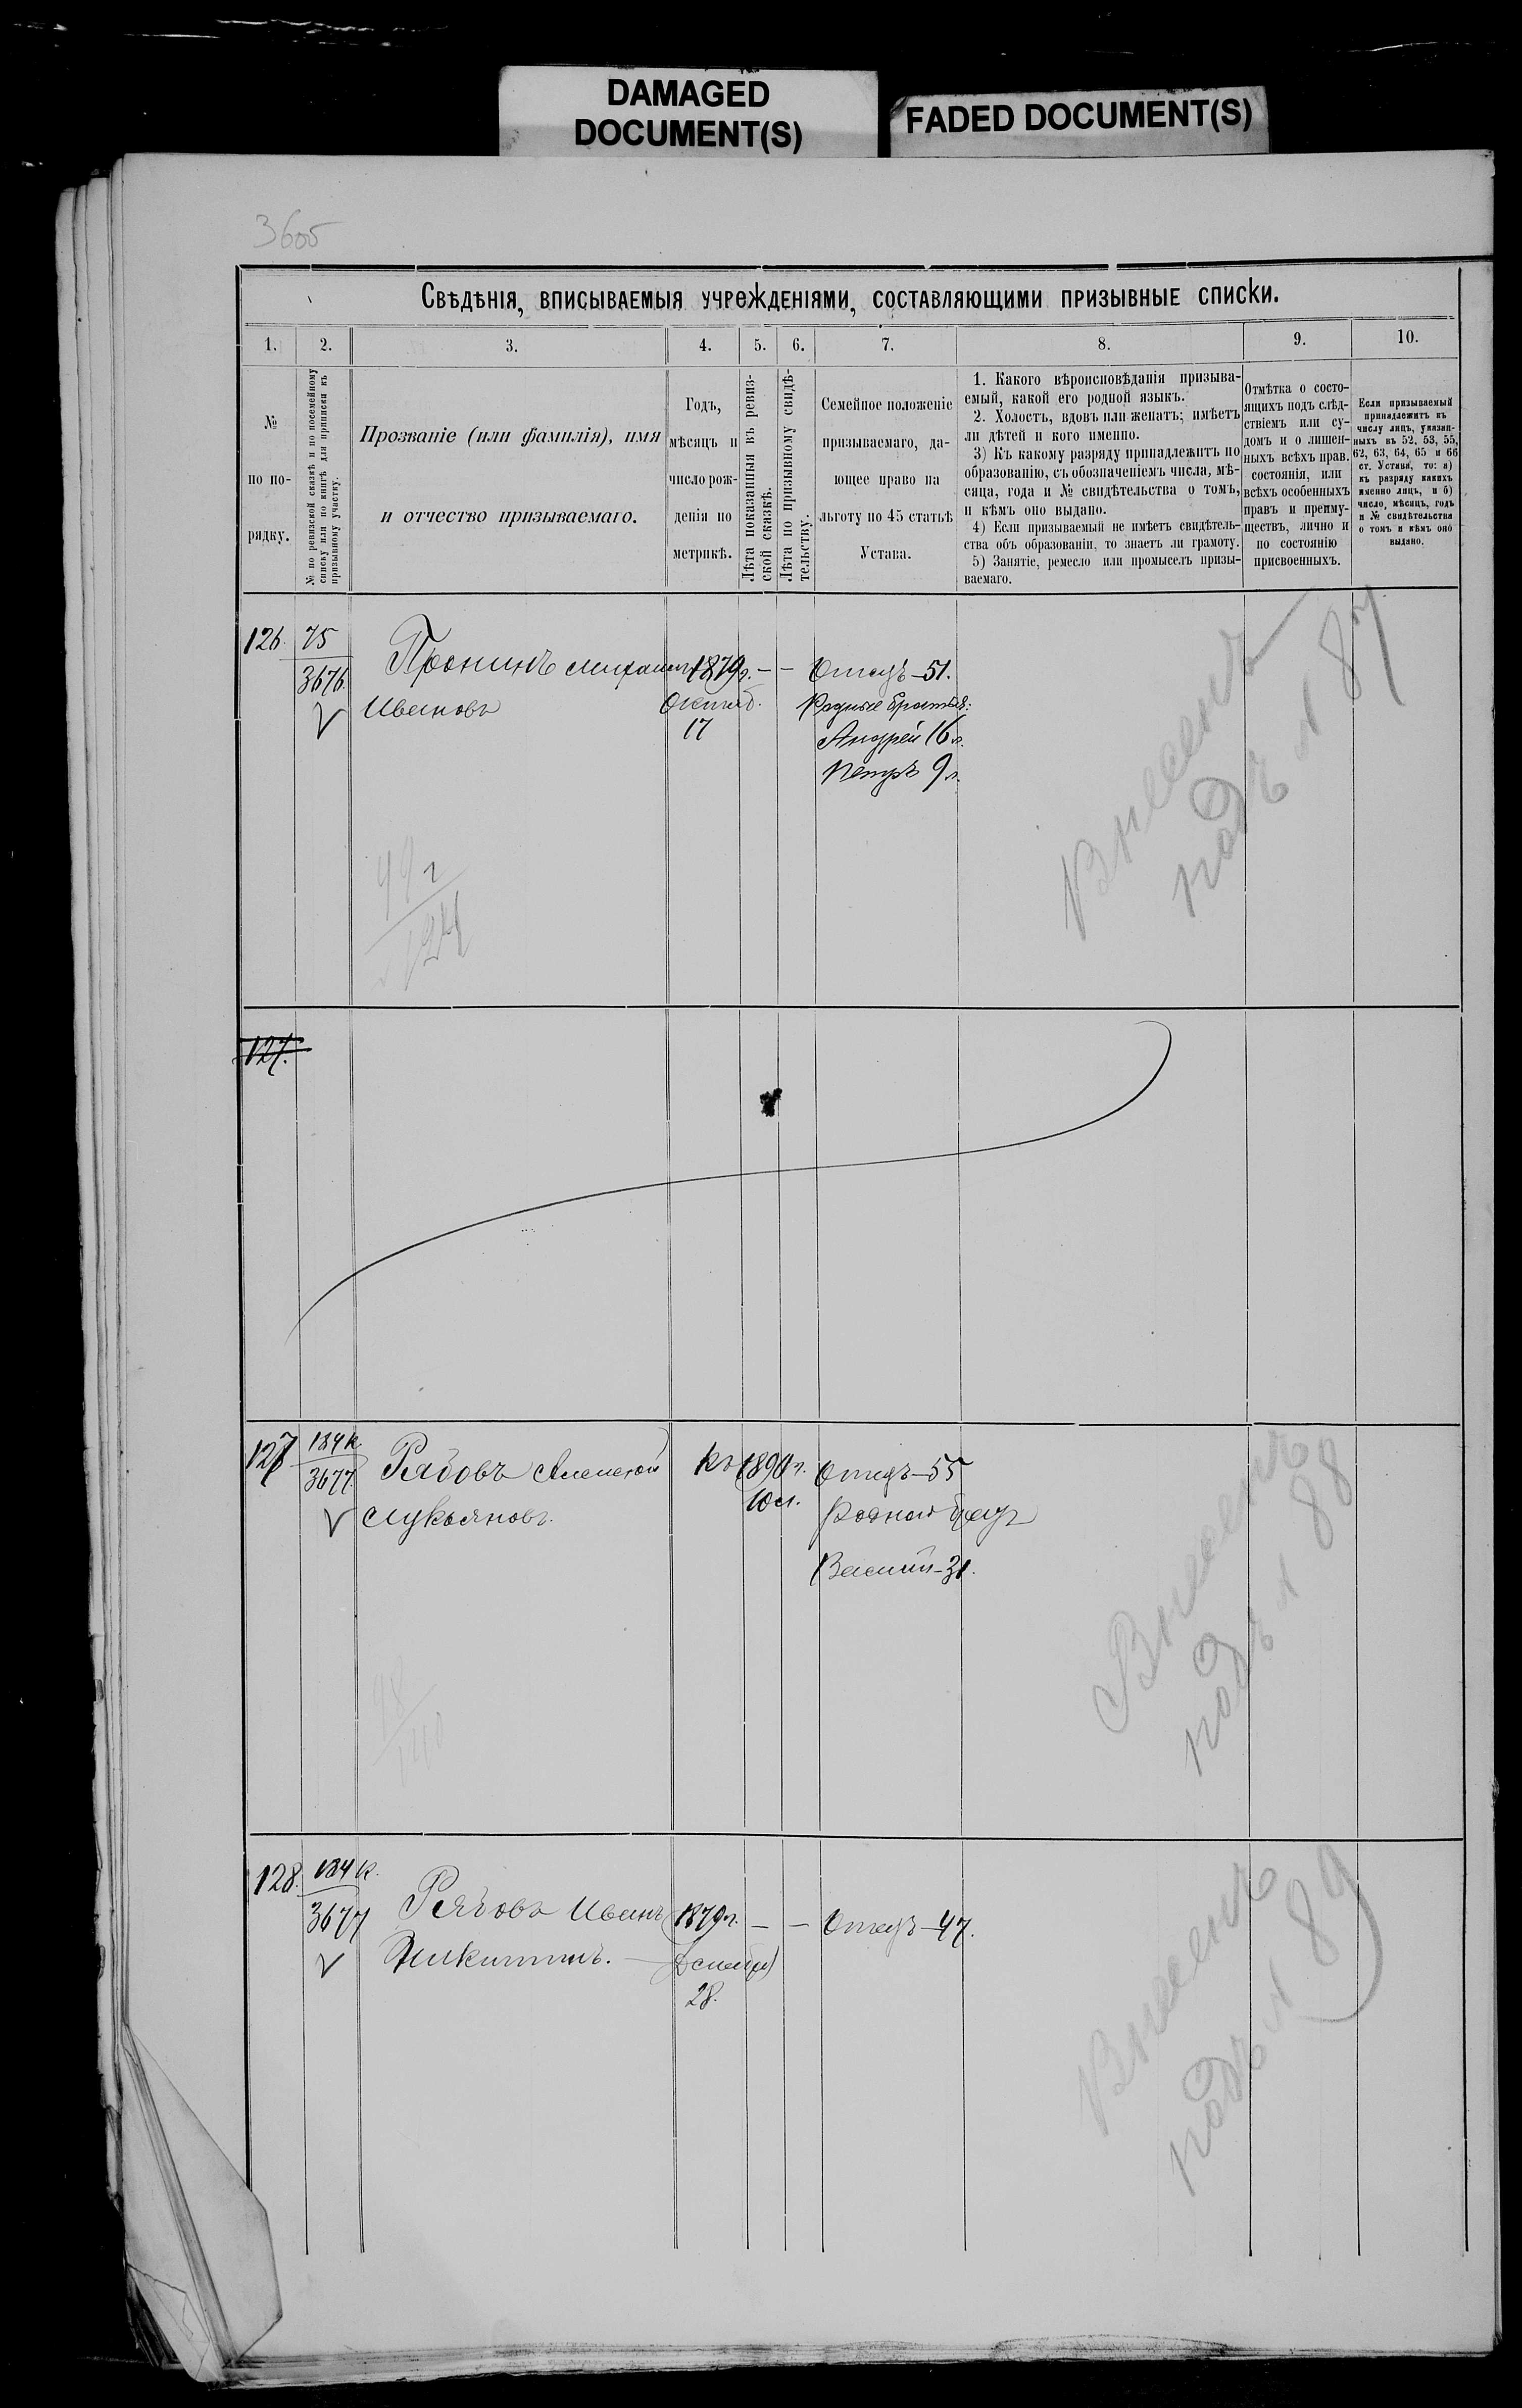 DAMAGED
DOCUMENT(S)
FADED DOCUMENT(S)
3605
Свѣдѣнія, вписываемыя учрежденіями, составляющими призывные списки.
1.
2.
3.
4.
5.
6.
7.
8.
9.
10.
№
по по-
рядку.
№ по ревизской сказкѣ и по посемейному
списку или по книгѣ для приписки къ
призывному участку.
Прозваніе (или фамилія), имя
и отчество призываемаго.
Годъ,
мѣсяцъ и
число рож-
денія по
метрикѣ.
Лѣта показанныя въ ревиз-
ской сказкѣ.
Лѣта по призывному свидѣ-
тельству.
Семейное положеніе
призываемаго, да-
ющее право на
льготу по 45 статьѣ
Устава.
1. Какого вѣроисповѣданія призыва-
емый, какой его родной языкъ.
2. Холостъ, вдовъ или женатъ; имѣетъ
ли дѣтей и кого именно.
3) Къ какому разряду принадлежитъ по
образованію, съ обозначеніемъ числа, мѣ-
сяца, года и № свидѣтельства о томъ,
и кѣмъ оно выдано.
4) Если призываемый не имѣетъ свидѣтель-
ства объ образованіи, то знаетъ ли грамоту.
5) Занятіе, ремесло или промыселъ призы-
ваемаго.
Отмѣтка о состо-
ящихъ подъ слѣд-
ствіемъ или су-
домъ и о лишен-
ныхъ всѣхъ прав.
состоянія, или
всѣхъ особенныхъ
правъ и преиму-
ществъ, лично и
по состоянію
присвоенныхъ.
Если призываемый
принадлежитъ къ
числу лицъ, указан-
ныхъ въ 52, 53, 55,
62, 63, 64, 65 и 66
ст. Устава, то: а)
къ разряду какихъ
именно лицъ, и б)
число, мѣсяцъ, годъ
и № свидѣтельства
о томъ и кѣмъ оно
выдано.
126.
75
3676.
Пронинъ Михаилъ
Ивановъ
1879г.
Октяб.
17
— —
Отецъ—51.
Родные братья:
Андрей 16 л.
Петръ 9 л.
Внесенъ
подъ № 87
127.
127
184 к
3677.
Рябовъ Алексѣй
Лукьяновъ.
Отецъ—55
Родной братъ
Василій—31.
Внесенъ
подъ № 88
128.
184 к.
3677
Рябовъ Иванъ
Никитинъ. —
1879г.
28.
— —
Отецъ—47.
Внесенъ
подъ № 89